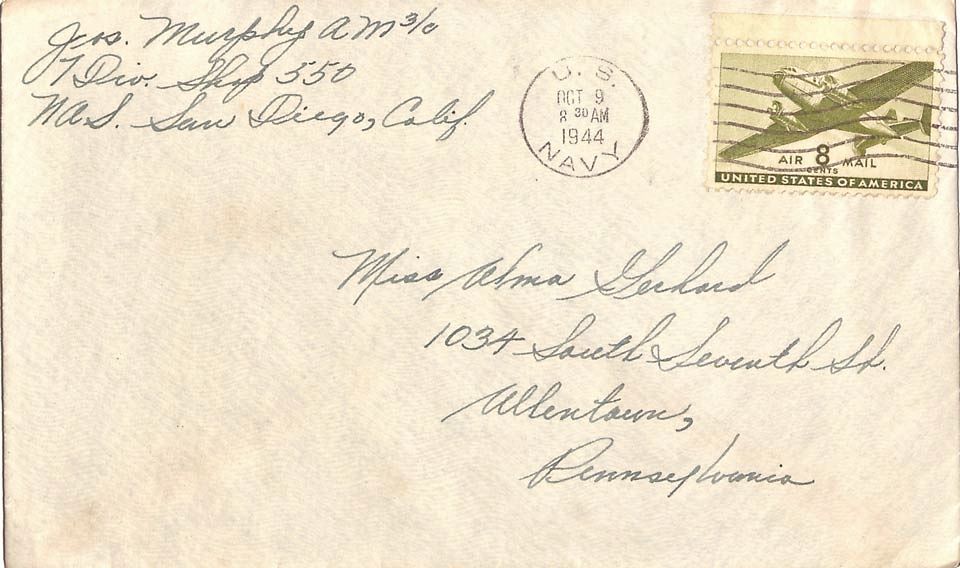 Jos. Murphy AM 3/c
7 Div. Shop 550
NAS. San Diego, Calif.
U. S.
OCT 9
8 30 AM
1944
NAVY
AIR 8 MAIL
CENTS
UNITED STATES OF AMERICA
Miss Alma Gerhard
1034 South Seventh St.
Allentown,
Pennsylvania